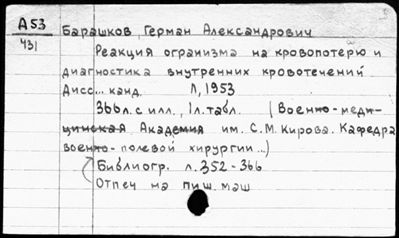 А53
431
Барашков, Герман Александрович
Реакция огранизма на кровопотерю и
диагностика внутренних кровотечений
Дисс... канд. Л, 1953
366л. с илл., 1л. табл. (Военно-меди-
цинская Академия им. С.М. Кирова. Кафедра
военно-полевой хирургии...)
Библиогр. л. 352-366
Отпеч на пиш. маш